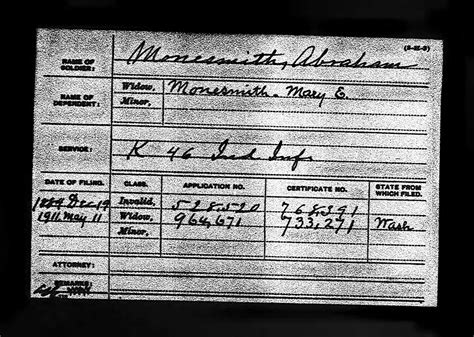 (3-45-3)
NAME OF SOLDIER: Monesmith, Abraham
NAME OF DEPENDENT: Widow, Monesmith, Mary E.
Minor,
SERVICE: K 46 Ind Inf
DATE OF FILING. CLASS. APPLICATION NO. CERTIFICATE NO. STATE FROM WHICH FILED.
1884 Dec 19 Invalid, 528,520 768,391
1911 May 11 Widow, 964,671 733,271 Wash
Minor,
ATTORNEY:
REMARKS: